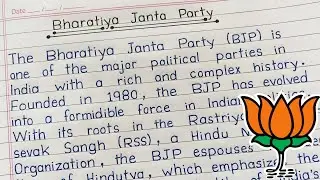 Date
Bharatiya Janta Party
The Bharatiya Janta Party (BJP) is
one of the major political parties in
India with a rich and complex history.
Founded in 1980, the BJP has evolved
into a formidible force in Indian
With its roots in the Rastriya
sevak Sangh (RSS), a Hindu
Organization, the BJP espouses
of Hindutva, which emphasize
of India's